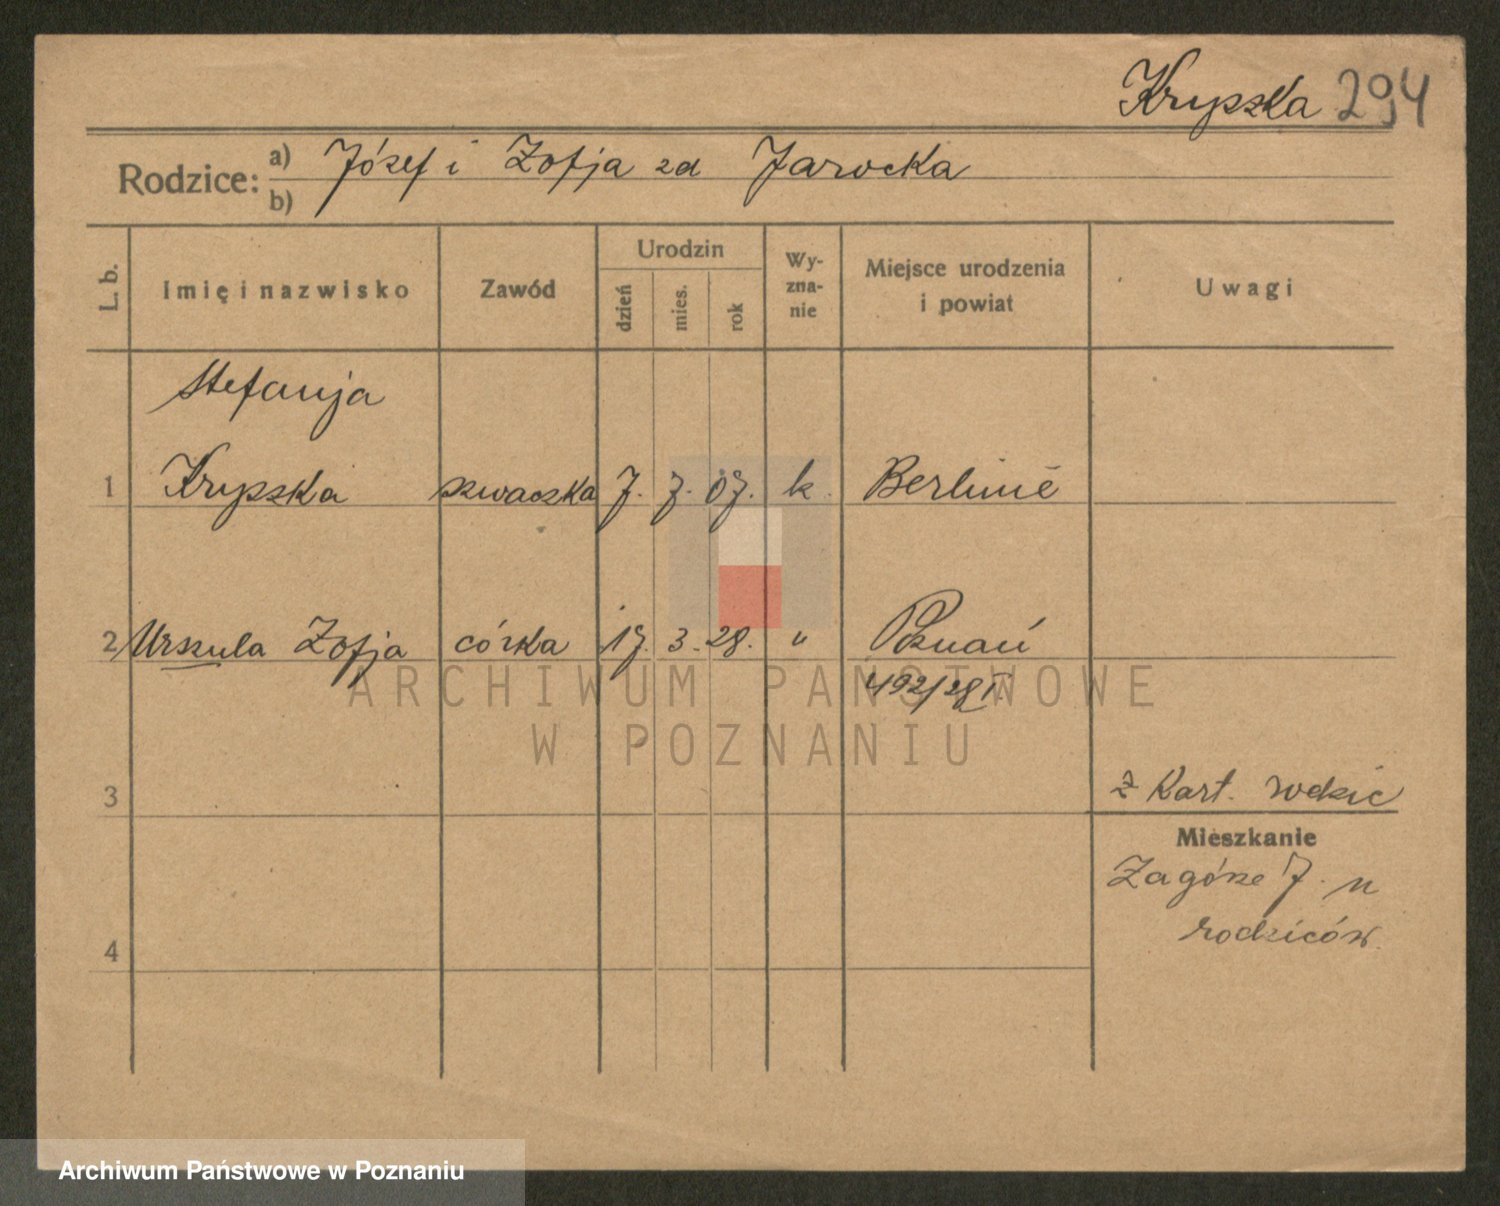 Kryszka 294
Rodzice: a) Józef i Zofja zd Jarocka
b)
L. b. Imię i nazwisko Zawód Urodzin dzień mies. rok Wy-zna-nie Miejsce urodzenia i powiat Uwagi
Stefanja
1 Kryszka szwaczka 7. 7. 07. k. Berlinie
2 Urszula Zofja córka 17. 3. 28. " Poznań
492/28
ARCHIWUM PAŃSTWOWE
W POZNANIU
3 z Kart. rodzic
Mieszkanie
Zagórze 7. u
rodziców.
4
Archiwum Państwowe w Poznaniu